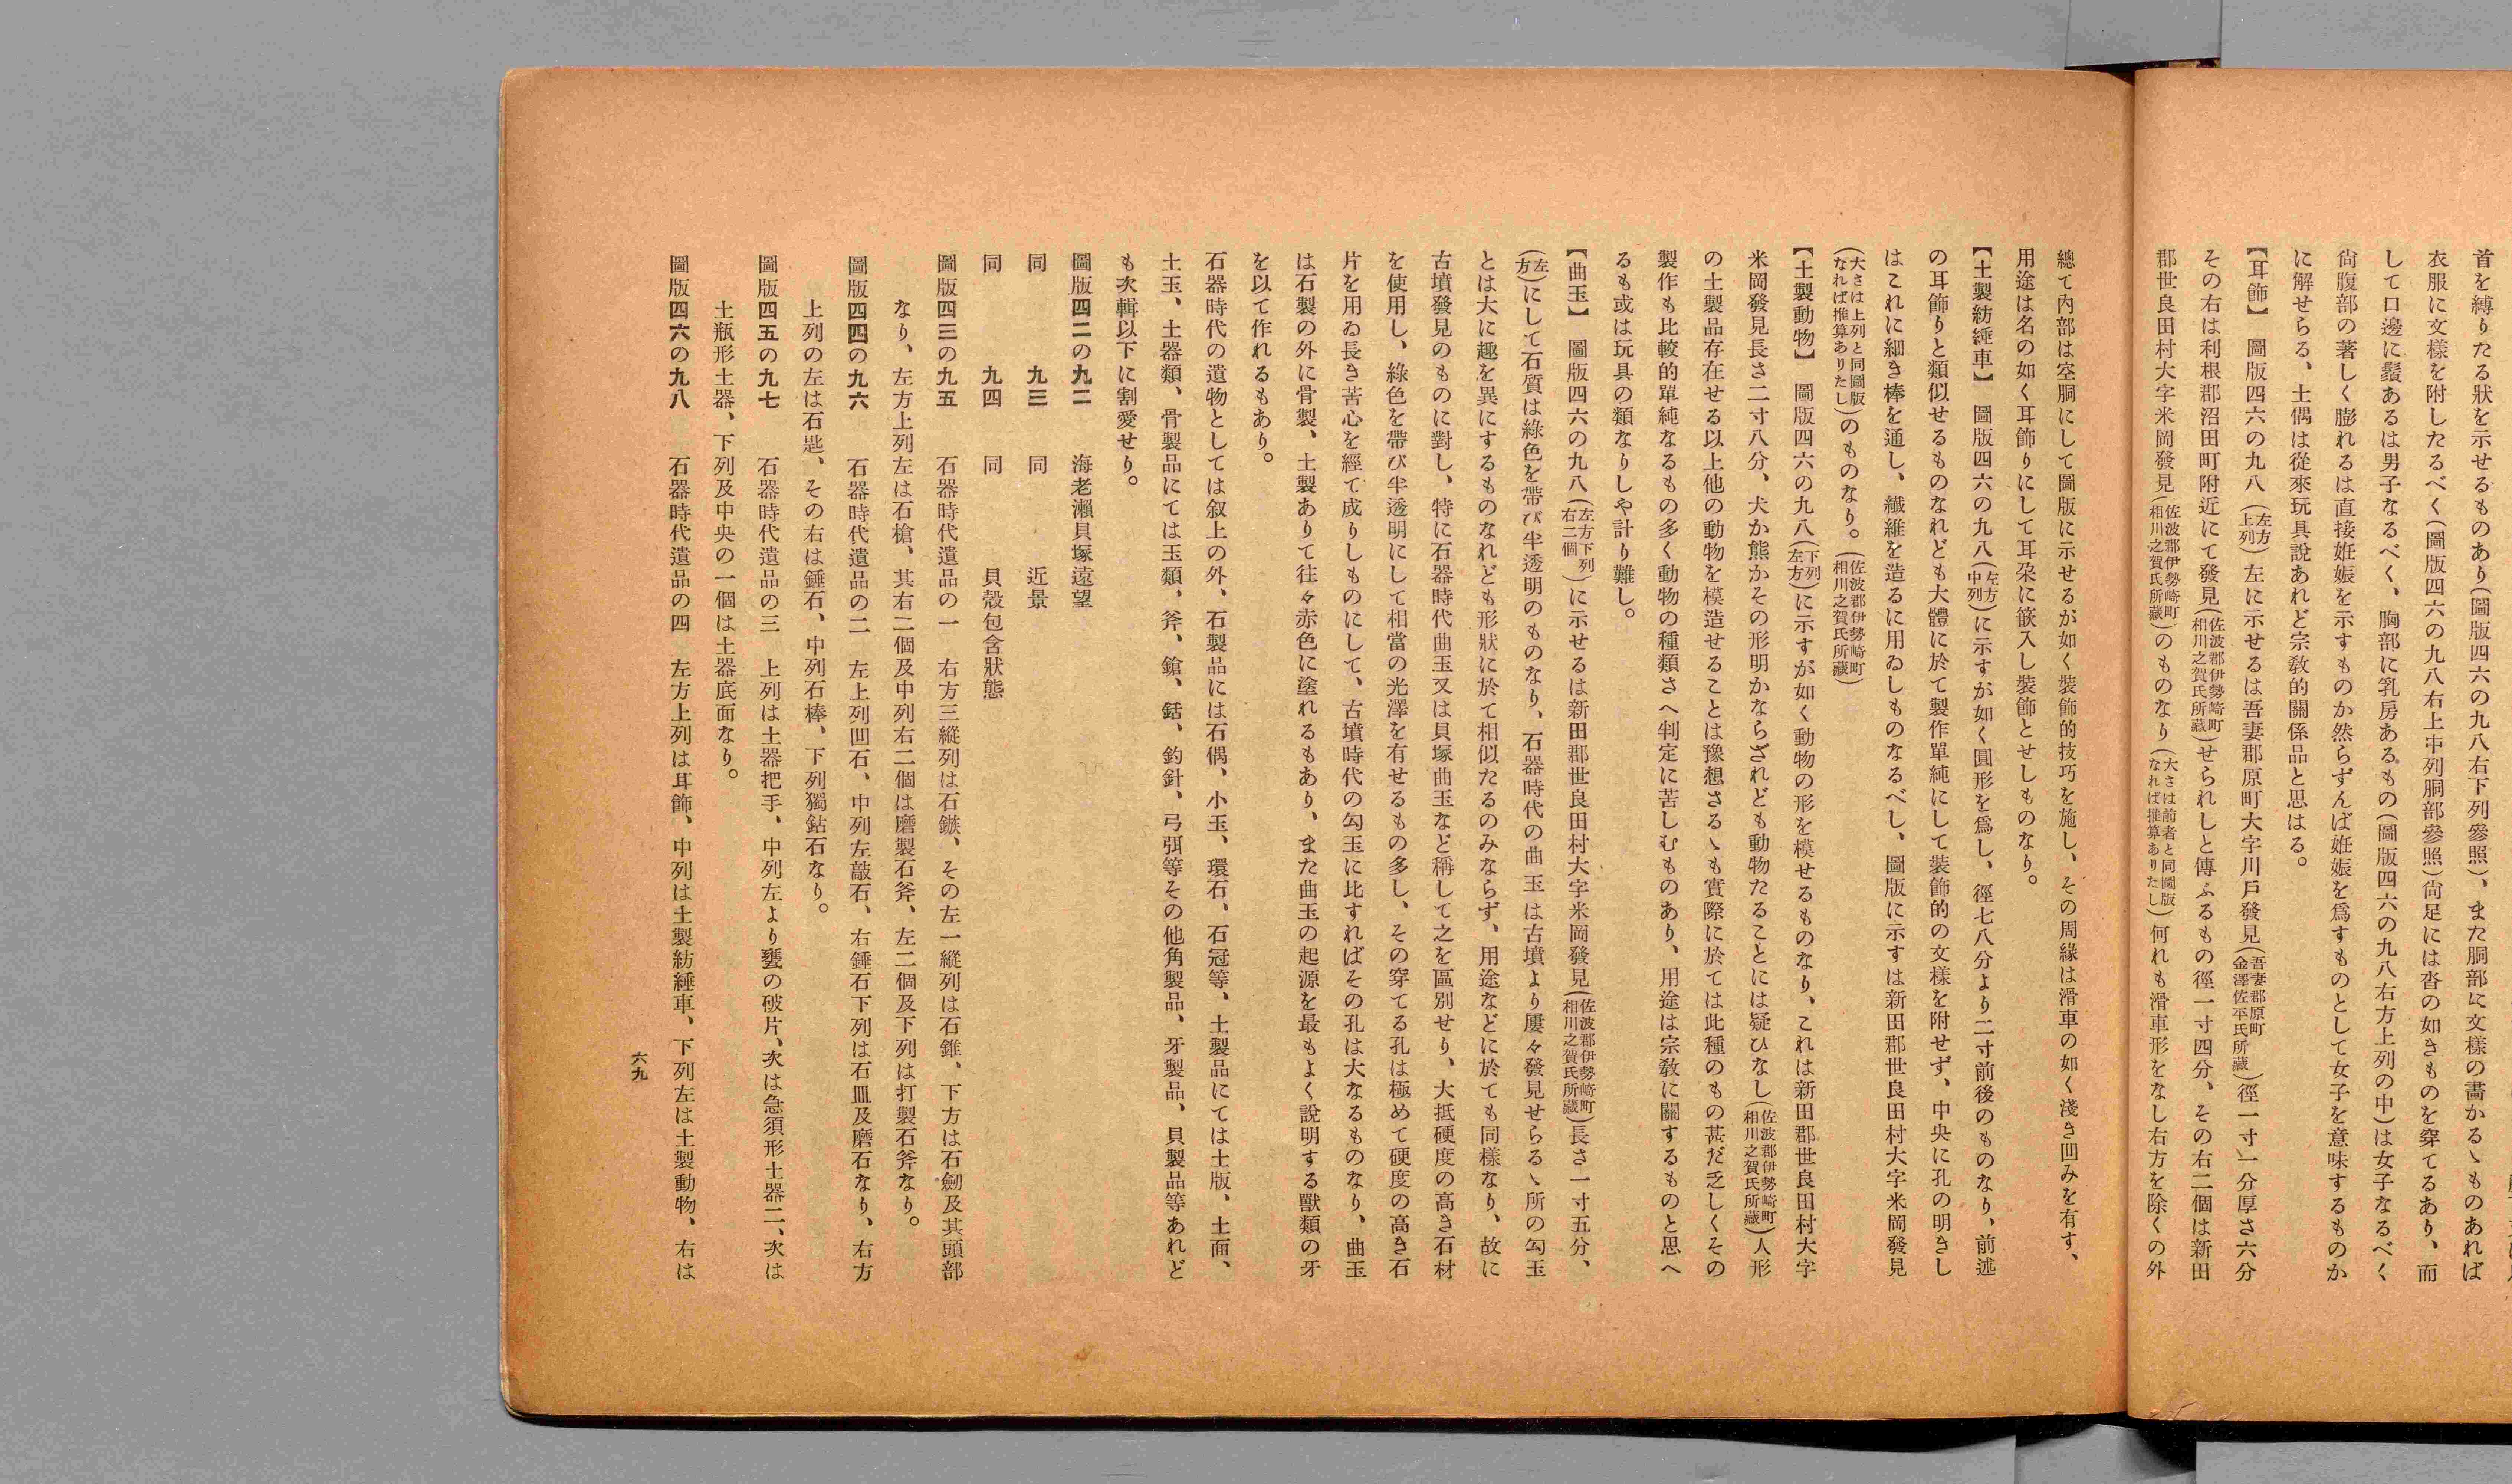 首を縛りたる狀を示せるものあり(圖版四六の九八右下列參照)、また胴部に文樣の畵かるゝものあれば
衣服に文樣を附したるべく(圖版四六の九八右上中列胴部參照)尙足には沓の如きものを穿てるあり、而
して口邊に鬚あるは男子なるべく、胸部に乳房あるもの(圖版四六の九八右方上列の中)は女子なるべく
尙腹部の著しく膨れるは直接姙娠を示すものか然らずんば姙娠を爲すものとして女子を意味するものか
に解せらる、土偶は從來玩具說あれど宗敎的關係品と思はる。
【耳飾】 圖版四六の九八(左方上列)左に示せるは吾妻郡原町大字川戶發見(吾妻郡原町金澤佐平氏所藏)徑一寸一分厚さ六分
その右は利根郡沼田町附近にて發見(佐波郡伊勢崎町相川之賀氏所藏)せられしと傳ふるもの徑一寸四分、その右二個は新田
郡世良田村大字米岡發見(佐波郡伊勢崎町相川之賀氏所藏)のものなり(大さは前者と同圖版なれば推算ありたし)何れも滑車形をなし右方を除くの外
總て內部は空胴にして圖版に示せるが如く裝飾的技巧を施し、その周緣は滑車の如く淺き凹みを有す、
用途は名の如く耳飾りにして耳朶に篏入し裝飾とせしものなり。
【土製紡錘車】 圖版四六の九八(左方中列)に示すが如く圓形を爲し、徑七八分より二寸前後のものなり、前述
の耳飾りと類似せるものなれども大體に於て製作單純にして裝飾的の文樣を附せず、中央に孔の明きし
はこれに細き棒を通し、纖維を造るに用ゐしものなるべし、圖版に示すは新田郡世良田村大字米岡發見
(大さは上列と同圖版なれば推算ありたし)のものなり。(佐波郡伊勢崎町相川之賀氏所藏)
【土製動物】 圖版四六の九八(下列左方)に示すが如く動物の形を模せるものなり、これは新田郡世良田村大字
米岡發見長さ二寸八分、犬か熊かその形明かならざれども動物たることには疑ひなし(佐波郡伊勢崎町相川之賀氏所藏)人形
の土製品存在せる以上他の動物を模造せることは豫想さるゝも實際に於ては此種のもの甚だ乏しくその
製作も比較的單純なるもの多く動物の種類さへ判定に苦しむものあり、用途は宗敎に關するものと思へ
るも或は玩具の類なりしや計り難し。
【曲玉】 圖版四六の九八(左方下列右二個)に示せるは新田郡世良田村大字米岡發見(佐波郡伊勢崎町相川之賀氏所藏)長さ一寸五分、
(左方)にして石質は綠色を帶び半透明のものなり、石器時代の曲玉は古墳より屢々發見せらるゝ所の勾玉
とは大に趣を異にするものなれども形狀に於て相似たるのみならず、用途などに於ても同樣なり、故に
古墳發見のものに對し、特に石器時代曲玉又は貝塚曲玉など稱して之を區別せり、大抵硬度の高き石材
を使用し、綠色を帶び半透明にして相當の光澤を有せるもの多し、その穿てる孔は極めて硬度の高き石
片を用ゐ長き苦心を經て成りしものにして、古墳時代の勾玉に比すればその孔は大なるものなり、曲玉
は石製の外に骨製、土製ありて往々赤色に塗れるもあり、また曲玉の起源を最もよく說明する獸類の牙
を以て作れるもあり。
石器時代の遺物としては叙上の外、石製品には石偶、小玉、環石、石冠等、土製品にては土版、土面、
土玉、土器類、骨製品にては玉類、斧、鎗、銛、釣針、弓弭等その他角製品、牙製品、貝製品等あれど
も次輯以下に割愛せり。
圖版四二の九二 海老瀨貝塚遠望
同 九三 同 近景
同 九四 同 貝殼包含狀態
圖版四三の九五 石器時代遺品の一 右方三縱列は石鏃、その左一縱列は石錐、下方は石劍及其頭部
なり、左方上列左は石槍、其右二個及中列右二個は磨製石斧、左二個及下列は打製石斧なり。
圖版四四の九六 石器時代遺品の二 左上列凹石、中列左敲石、右錘石下列は石皿及磨石なり、右方
上列の左は石匙、その右は錘石、中列石棒、下列獨鈷石なり。
圖版四五の九七 石器時代遺品の三 上列は土器把手、中列左より甕の破片、次は急須形土器二、次は
土瓶形土器、下列及中央の一個は土器底面なり。
圖版四六の九八 石器時代遺品の四 左方上列は耳飾、中列は土製紡錘車、下列左は土製動物、右は
六九